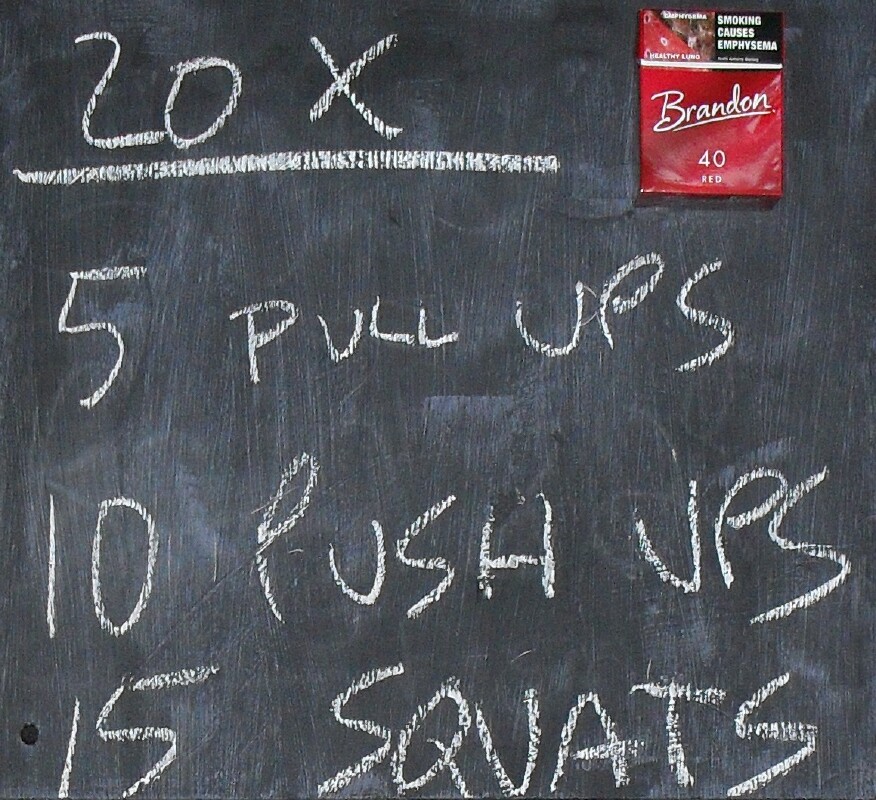 20 X
EMPHYSEMA
HEALTHY LUNG
SMOKING
CAUSES
EMPHYSEMA
Brandon
40
RED
5 PULL UPS
10 PUSH UPS
15 SQUATS